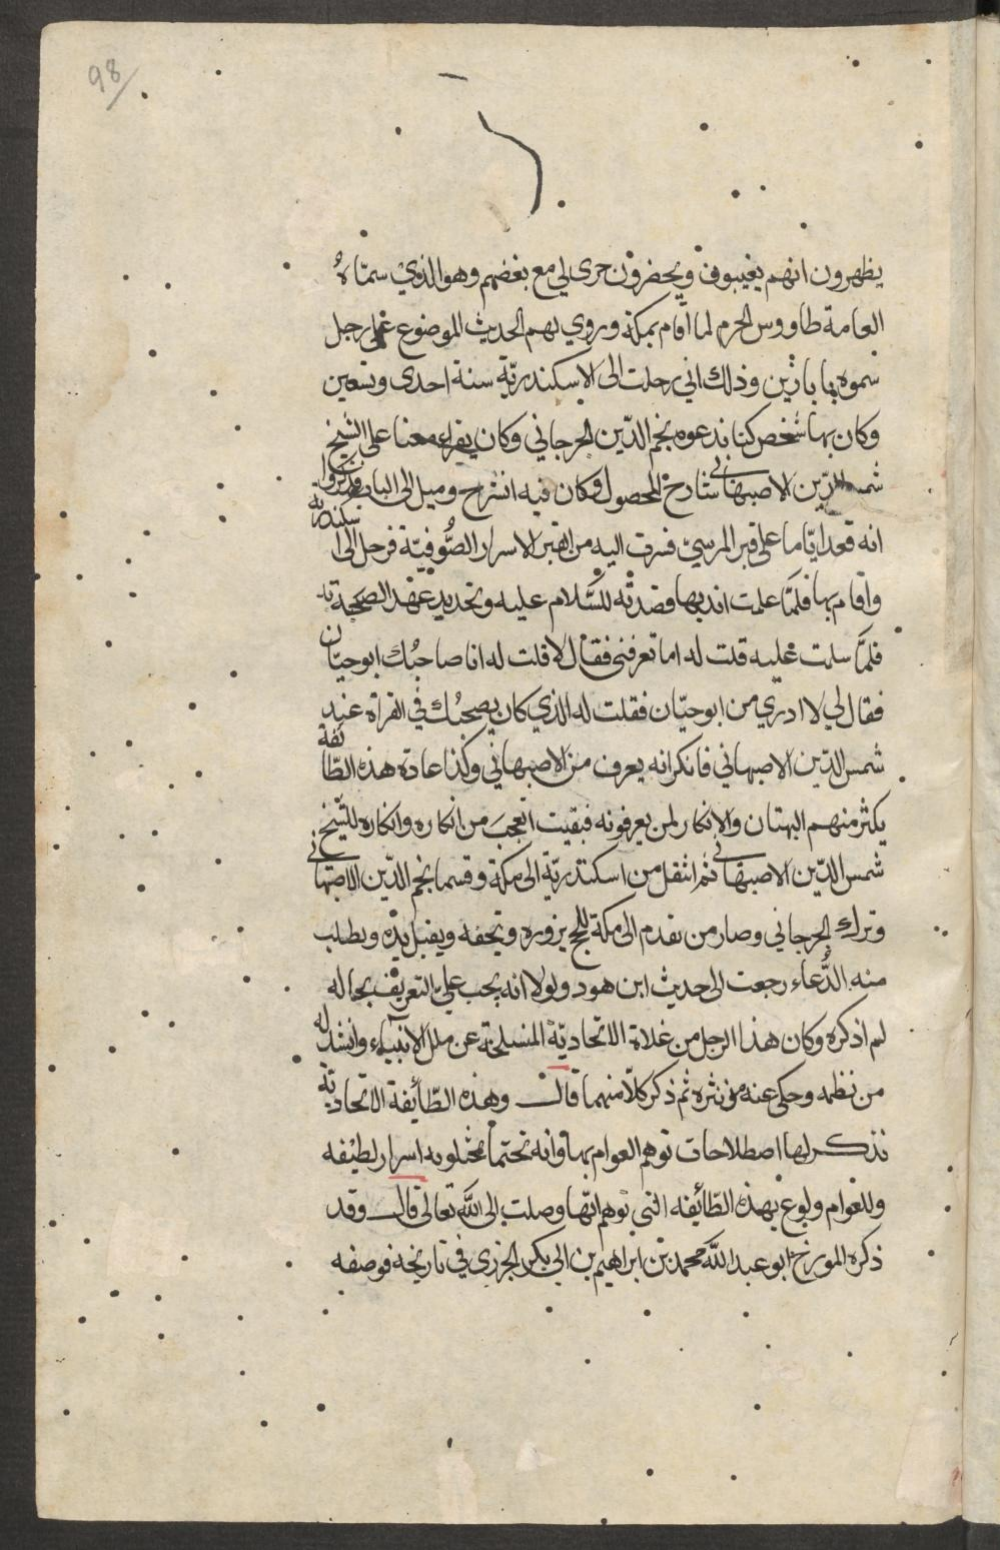 98
يظهرون انهم يغيبوون ويحضرون جرى لي مع بعضهم وهو الذي سمتاه
العامة طاووس الحرم لما اقام بمكة وروي لهم الحديث الموضوع على رجل
سموه بابارتين وذلك اني رحلت الى الاسكندريّة سنة احدى وتسعين
وكان بها شخص كنا ندعوه نجم الدّين الجرجاني وكان يقراء معنا على الشيخ
شمس الدّين الاصبهاني شارح المحصول وكان فيه انشراح وميل الى الباب فذكروا
انه قعد ايّاما على قبر المرسي فسرت اليه من القبر الاسرار الصُّوفيّة فرحل الى اسكندرية
واقام بها فلمّا علمت انه بها قصدته للسّلام عليه وتجديد عهد الصحبة به
فلمّا سلمت عليه قلت له اما تعرفني فقال لا قلت له انا صاحبُك ابو حيّان
فقال لي لا ادري من ابو حيّان فقلت له الذي كان يصحبُك في القراة عند
شمس الدّين الاصبهاني فانكر انه يعرف من الاصبهاني وكذا عادة هذه الطّائفة
يكثر منهم البهتان والانكار لمن يعرفونه فبقيت اتعجب من انكاره وانكاره للشّيخ
شمس الدّين الاصبهاني ثم انتقل من اسكندريّة الى مكة وتسمّا نجم الدّين الاصبهاني
وترك الجرجاني وصار من تقدم الى مكة للحج يزوره ويتحفه ويقبل يده ويطلب
منه الدُّعاء رجعت الى حديث ابن هود ولولا انه يجب عليّ التعريف بحاله
لم اذكره وكان هذا الرجل من غلاة الاتحاديّة المنسلخة عن ملل الانبياء وانشد له
من نظمه وحكى عنه من نثره ثم ذكر كلّا منهما قال وهذه الطّائفة الاتحاديّة
نذكر لها اصطلاحات توهم العوام بها وانه تحتها اسرار لطيفه
وللعوام ولوع بهذه الطّائفه التي توهم انها وصلت الى الله تعالى قال وقد
ذكره المورخ ابو عبد الله محمد بن ابراهيم بن ابي بكر الجزري في تاريخه فوصفه